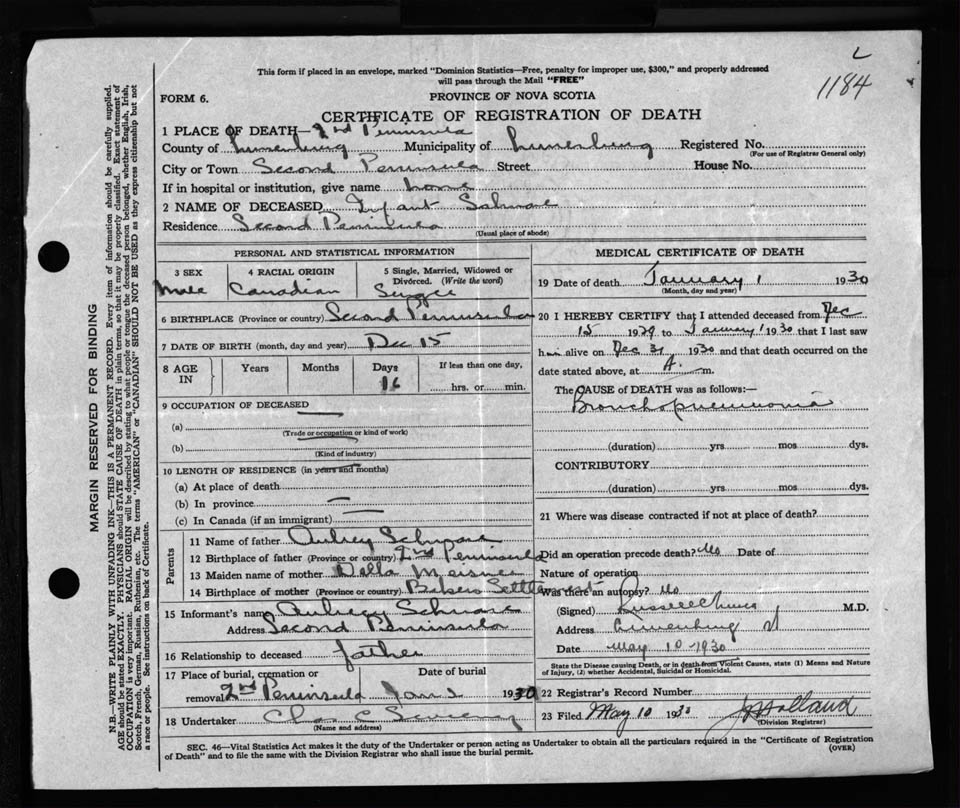 L
1184
This form if placed in an envelope, marked "Dominion Statistics—Free, penalty for improper use, $300," and properly addressed
will pass through the Mail "FREE"
FORM 6.
PROVINCE OF NOVA SCOTIA
CERTIFICATE OF REGISTRATION OF DEATH
1 PLACE OF DEATH— 2nd Peninsula
County of Lunenburg Municipality of Lunenburg Registered No.
(For use of Registrar General only)
City or Town Second Peninsula Street House No.
If in hospital or institution, give name home
2 NAME OF DECEASED Infant Schware
Residence Second Peninsula
(Usual place of abode)
PERSONAL AND STATISTICAL INFORMATION
3 SEX 4 RACIAL ORIGIN 5 Single, Married, Widowed or
Divorced. (Write the word)
Male Canadian Single
6 BIRTHPLACE (Province or country) Second Peninsula
7 DATE OF BIRTH (month, day and year) Dec 15
8 AGE IN Years Months Days If less than one day,
16 hrs. or min.
9 OCCUPATION OF DECEASED
(a)
(Trade or occupation or kind of work)
(b)
(Kind of industry)
10 LENGTH OF RESIDENCE (in years and months)
(a) At place of death
(b) In province
(c) In Canada (if an immigrant)
Parents
11 Name of father Aubrey Schware
12 Birthplace of father (Province or country) 2nd Peninsula
13 Maiden name of mother Della Meisner
14 Birthplace of mother (Province or country) Bakers Settlement
15 Informant's name Aubrey Schware
Address Second Peninsula
16 Relationship to deceased father
17 Place of burial, cremation or Date of burial
removal 2nd Peninsula Jan 2 1930
18 Undertaker Chas C
(Name and address)
MEDICAL CERTIFICATE OF DEATH
19 Date of death January 1 1930
(Month, day and year)
20 I HEREBY CERTIFY that I attended deceased from Dec
15 1929 to January 1 1930 that I last saw
him alive on Dec 31 1930 and that death occurred on the
date stated above, at A. m.
The CAUSE OF DEATH was as follows:—
Bronchopneumonia
(duration) yrs mos dys.
CONTRIBUTORY
(duration) yrs mos dys.
21 Where was disease contracted if not at place of death?
Did an operation precede death? No Date of
Nature of operation
Was there an autopsy? No
(Signed) M.D.
Address Lunenburg
Date May 10 1930
State the Disease causing Death, or in death from Violent Causes, state (1) Means and Nature
of Injury, (2) whether Accidental, Suicidal or Homicidal.
22 Registrar's Record Number
23 Filed May 10 1930 Holland
(Division Registrar)
SEC. 46—Vital Statistics Act makes it the duty of the Undertaker or person acting as Undertaker to obtain all the particulars required in the "Certificate of Registration
of Death" and to file the same with the Division Registrar who shall issue the burial permit.
(OVER)
MARGIN RESERVED FOR BINDING
N.B.—WRITE PLAINLY WITH UNFADING INK—THIS IS A PERMANENT RECORD. Every item of information should be carefully supplied.
AGE should be stated EXACTLY. PHYSICIANS should STATE CAUSE OF DEATH in plain terms, so that it may be properly classified. Exact statement of
OCCUPATION is very important. RACIAL ORIGIN will be described by stating to what people or tongue the deceased person belonged, whether English, Irish,
Scotch, French, German, Russian, Ruthenian, etc. The terms "AMERICAN" or "CANADIAN" SHOULD NOT BE USED as they express citizenship but not
a race or people. See instructions on back of Certificate.